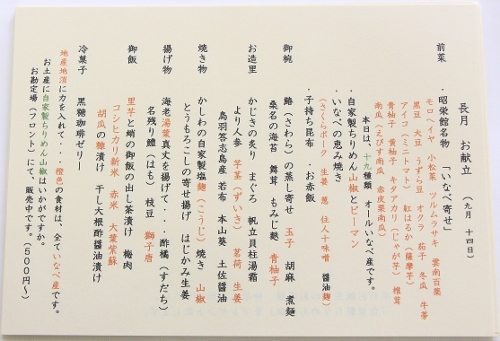 長月 お献立 (九月 十四日)
前菜
・昭栄館名物 「いなべ寄せ」
モロヘイヤ 小松菜 ツルムラサキ 雲南百薬
黒豆 大豆 うずら豆 オクラ 茄子 冬瓜 牛蒡
紅はるか(薩摩芋)
青柚子 黄柚子 キタアカリ(じゃが芋) 椎茸
南瓜(えびす南瓜 赤皮栗南瓜)
本日は、十九種類 オールいなべ産です。
・自家製ちりめん山椒とピーマン
・いなべの恵み焼き
(さくらポーク 生姜 葱 住人十味噌 醤油麹)
・子持ち昆布 ・お赤飯
御椀
鰆(さわら)の蒸し寄せ 玉子 胡麻 煮麺
桑名の海苔 舞茸 もみじ麩 青柚子
お造里
かじきの炙り まぐろ 帆立貝柱湯霜
より人参 芋茎(ずいき) 茗荷 生姜
鳥羽答志島産 若布 本山葵 土佐醤油
焼き物
かしわの自家製塩麹(こうじ)焼き 山椒
とうもろこしの寄せ揚げ はじかみ生姜
揚げ物
海老湯葉真丈を揚げて・・・酢橘(すだち)
名残り鱧(はも) 枝豆 獅子唐
御飯
里芋と蛸の御飯の出し茶漬け 梅肉
コシヒカリ新米 赤米 大葉紫蘇
胡瓜の糠漬け 干し大根酢醤油漬け
冷菓子
黒糖珈琲ゼリー
地産地消に力を入れて・・・橙色の食材は、全ていなべ産です。
お土産に自家製ちりめん山椒はいかがですか。
お勘定場(フロント)にて、販売中です。(500円〜)